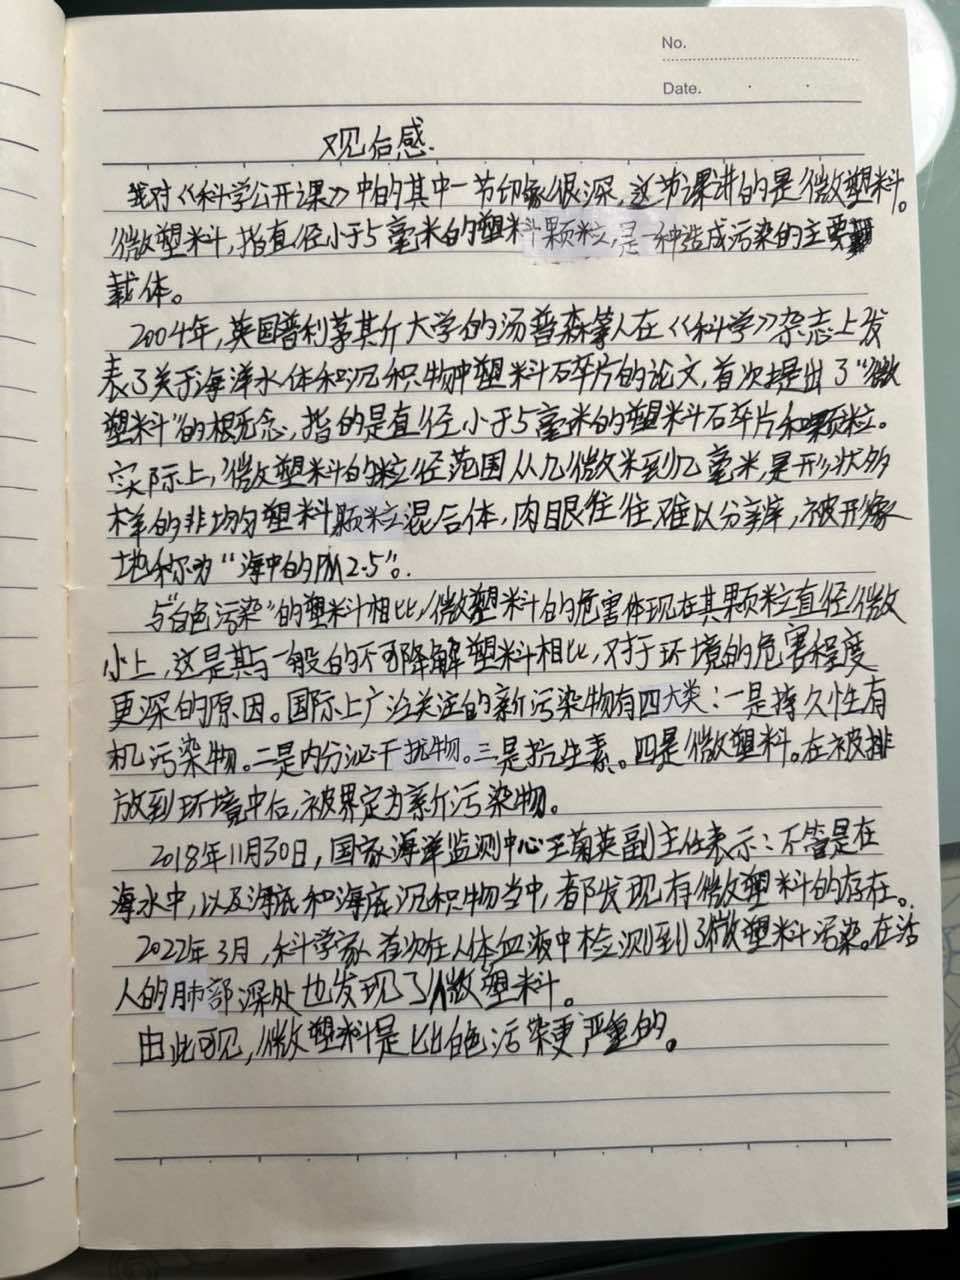 No.
Date.
观后感.
我对《科学公开课》中的其中一节印象很深，这节课讲的是微塑料。
微塑料，指直径小于5毫米的塑料颗粒，是一种造成污染的主要
载体。
2004年，英国普利茅其斤大学的汤普森等人在《科学》杂志上发
表了关于海洋水体和沉积物中塑料碎片的论文，首次提出了“微
塑料”的概念，指的是直径小于5毫米的塑料碎片和颗粒。
实际上，微塑料的粒径范围从几微米到几毫米，是形状多
样的非均匀塑料颗粒混合体，肉眼往往难以分辨，被形象
地称为“海中的PM2.5”。
与“白色污染”的塑料相比，微塑料的危害体现在其颗粒直径微
小上，这是其与一般的不可降解塑料相比，对于环境的危害程度
更深的原因。国际上广泛关注的新污染物有四大类：一是持久性有
机污染物。二是内分泌干扰物。三是抗生素。四是微塑料。在被排
放到环境中后，被界定为新污染物。
2018年11月30日，国家海洋监测中心王菊英副主任表示：不管是在
海水中，以及海底和海底沉积物当中，都发现有微塑料的存在。
2022年3月，科学家首次在人体血液中检测到了微塑料污染。在活
人的肺部深处也发现了微塑料。
由此可见，微塑料是比白色污染更严重的。